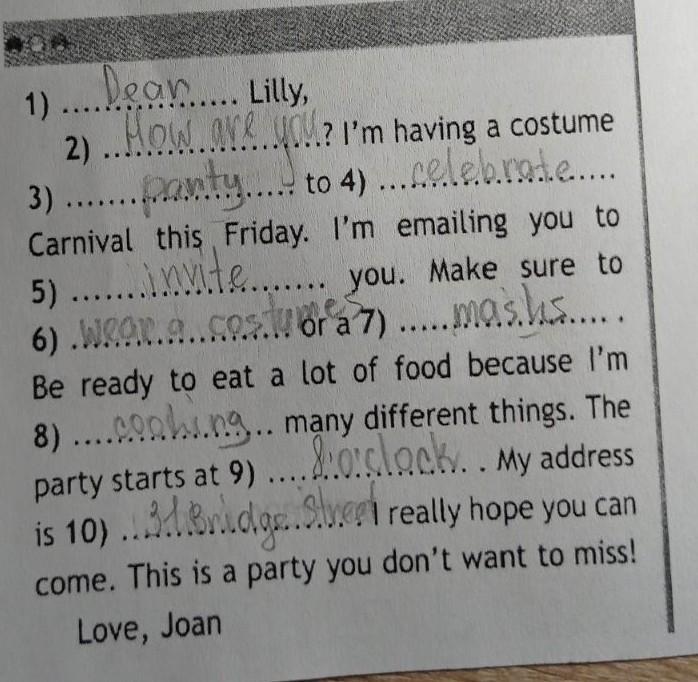 1) ....Dear.... Lilly,
2) ....How are you....? I'm having a costume
3) ....party.... to 4) ....celebrate....
Carnival this Friday. I'm emailing you to
5) ....invite.... you. Make sure to
6) ....wear a costumes.... or a 7) ....masks.... .
Be ready to eat a lot of food because I'm
8) ....cooking.... many different things. The
party starts at 9) ....8 o'clock.... . My address
is 10) ....31 Bridge Street.... I really hope you can
come. This is a party you don't want to miss!
Love, Joan